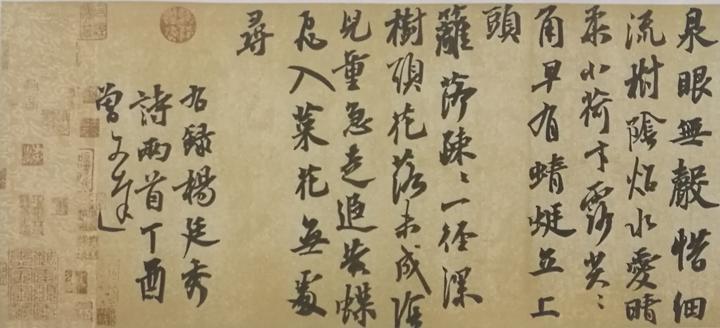 泉眼無聲惜細
流樹陰炤水愛晴
柔小荷才露尖〻
角早有蜻蜓立上
頭
籬落疎〻一徑深
樹頭花落未成陰
兒童急走追黃蝶
飛入菜花無處
尋
右録楊廷秀
詩兩首丁酉
曾